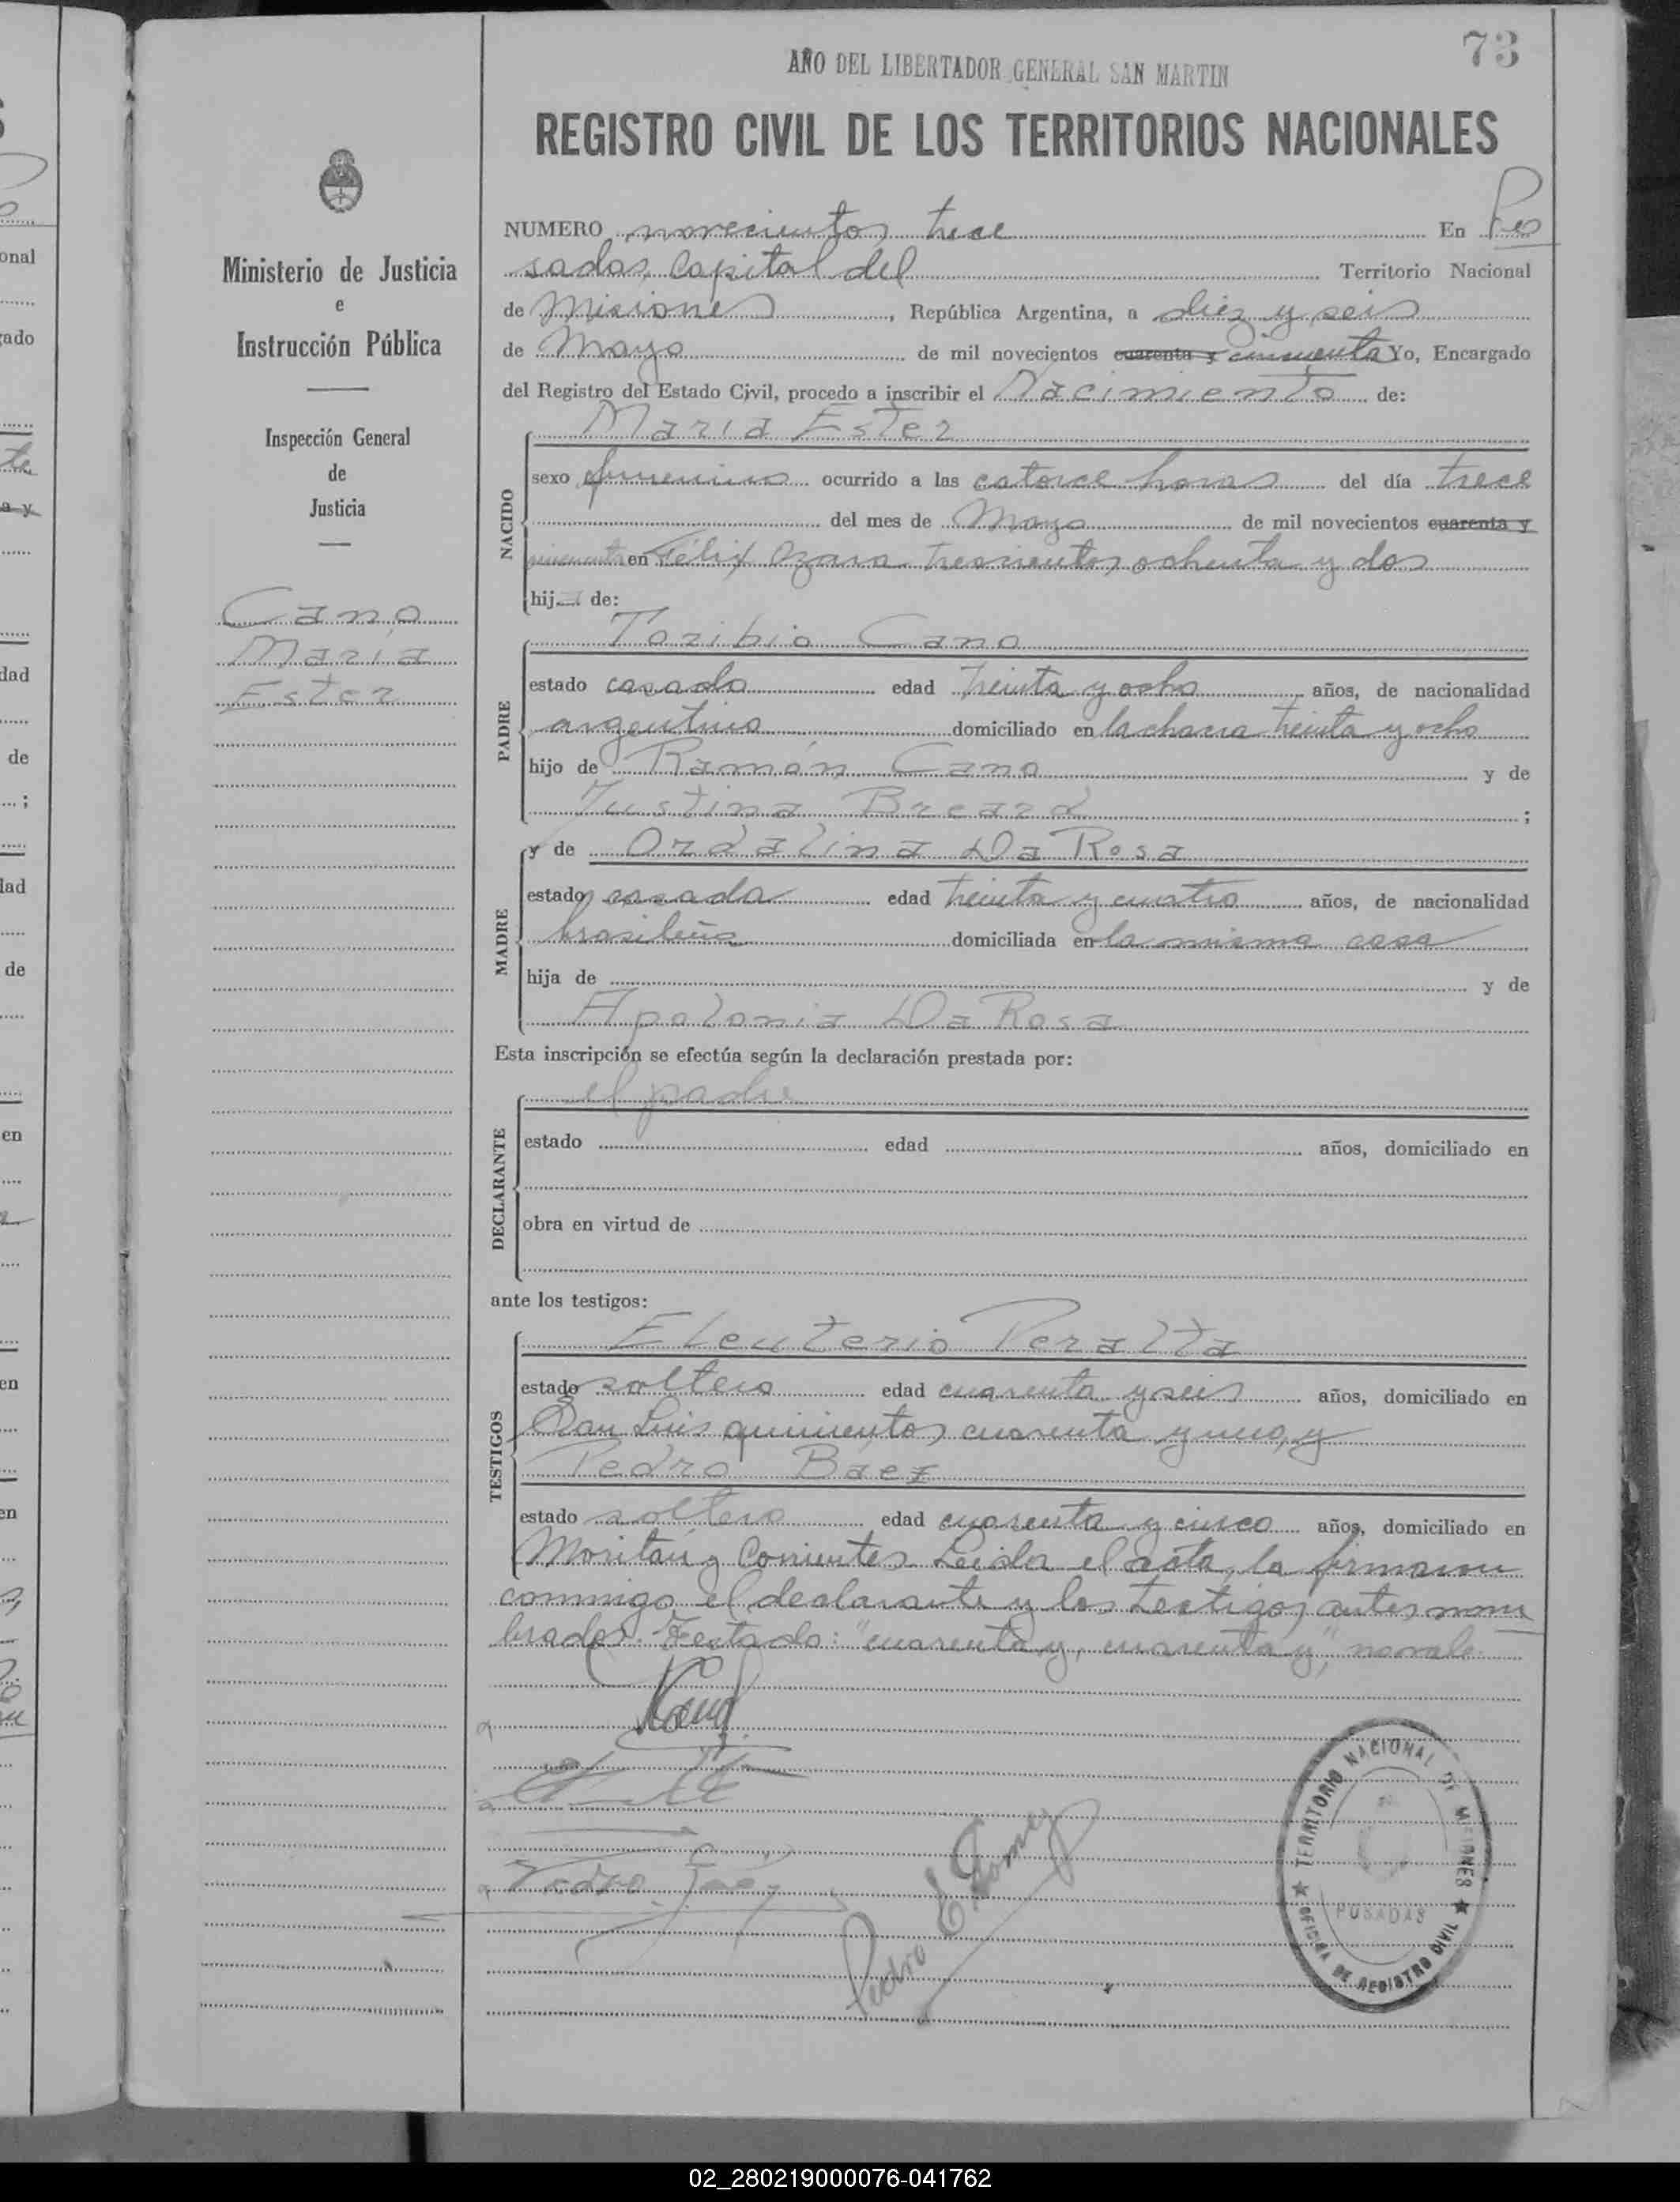 73
AÑO DEL LIBERTADOR GENERAL SAN MARTIN
REGISTRO CIVIL DE LOS TERRITORIOS NACIONALES
Ministerio de Justicia
e
Instrucción Pública
Inspección General
de
Justicia
Cano
Maria
Ester
NUMERO novecientos trece En Po
sadas, Capital del Territorio Nacional
de Misiones, República Argentina, a diez y seis
de Mayo de mil novecientos cuarenta y cincuenta Yo, Encargado
del Registro del Estado Civil, procedo a inscribir el Nacimiento de:
NACIDO
Maria Ester
sexo femenino ocurrido a las catorce horas del día trece
del mes de Mayo de mil novecientos cuarenta y
cincuenta en Félix Azara trescientos ochenta y dos
hija de:
PADRE
Toribio Cano
estado casado edad treinta y ocho años, de nacionalidad
argentino domiciliado en la chacra treinta y ocho
hijo de Ramón Cano y de
Justina Breard ;
MADRE
y de Ordalina Da Rosa
estado casada edad treinta y cuatro años, de nacionalidad
brasileña domiciliada en la misma casa
hija de y de
Apolonia Da Rosa
Esta inscripción se efectúa según la declaración prestada por:
DECLARANTE
el padre
estado edad años, domiciliado en
obra en virtud de
ante los testigos:
TESTIGOS
Eleuterio Peralta
estado soltero edad cuarenta y seis años, domiciliado en
San Luis quinientos cuarenta y uno, y
Pedro Baez
estado soltero edad cuarenta y cinco años, domiciliado en
Moritán y Corrientes. Leída el acta, la firmaron
conmigo el declarante y los testigos antes nom
brados. Testado: "cuarenta y, cuarenta y", no vale.
Cano
Pedro Baez
Pedro E Gomez
TERRITORIO NACIONAL DE MISIONES
POSADAS
OFICINA DE REGISTRO CIVIL
02_280219000076-041762